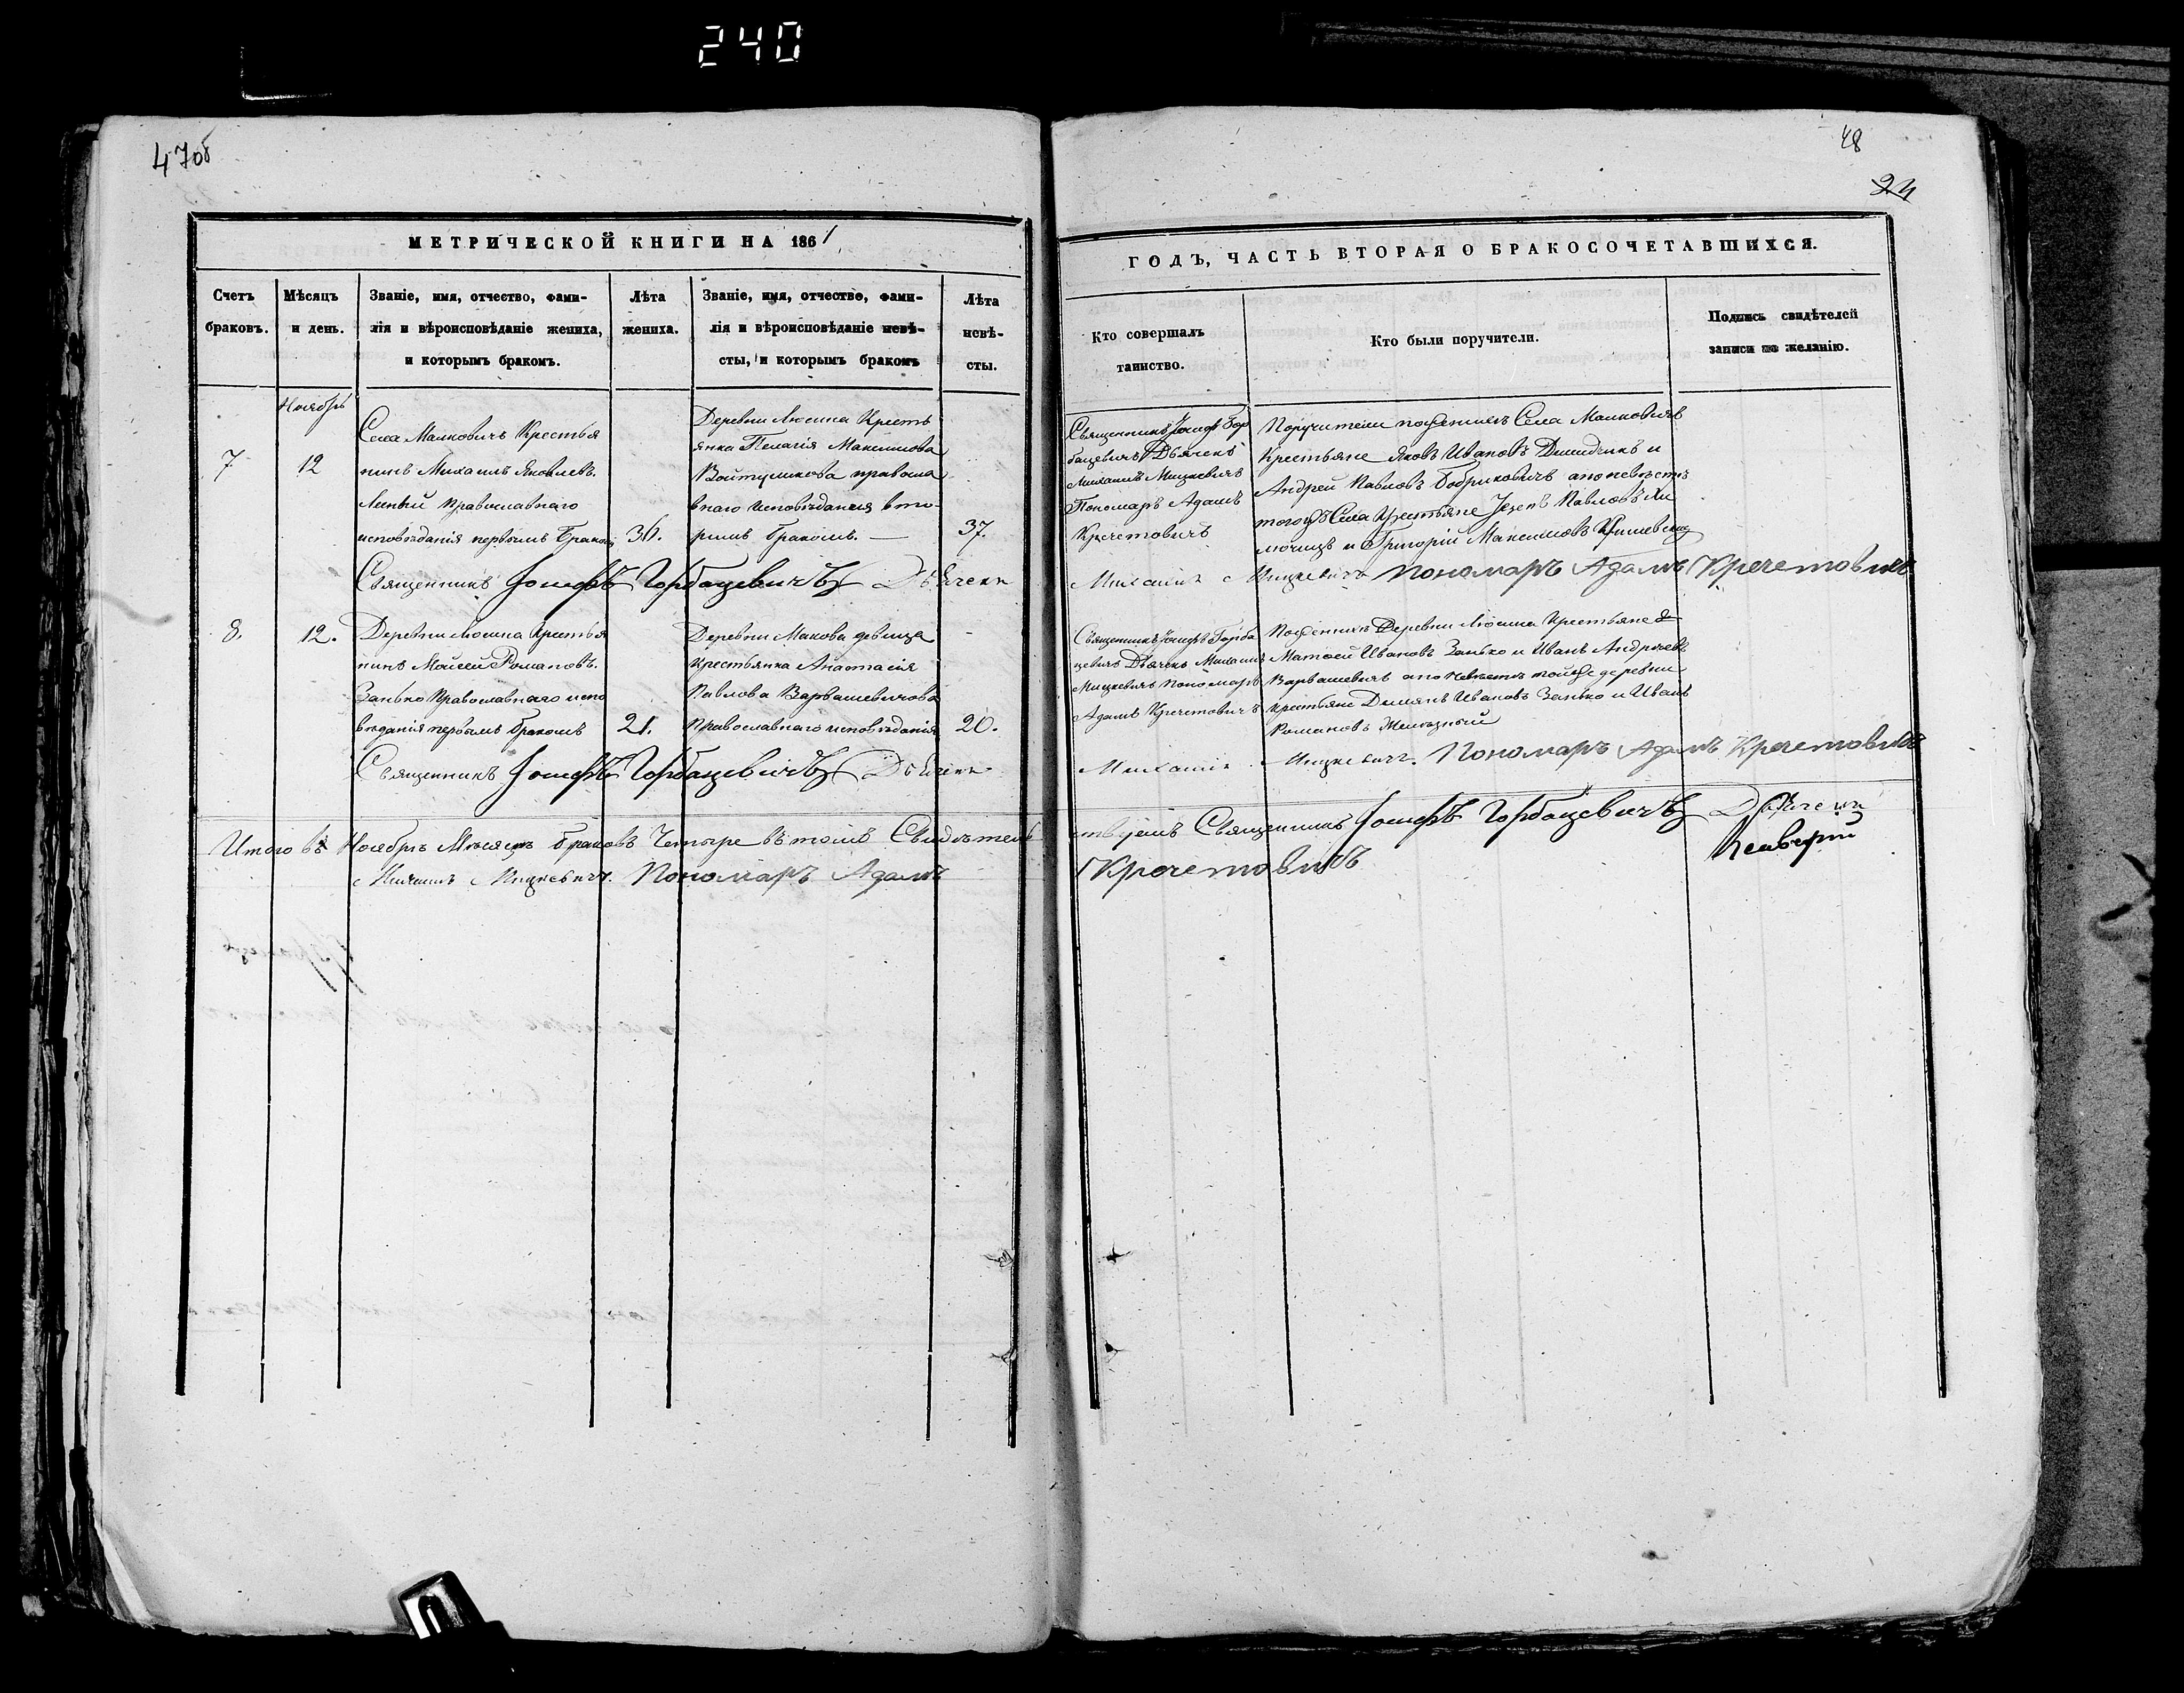 240
47об
МЕТРИЧЕСКОЙ КНИГИ НА 1861
Счетъ браковъ.
Мѣсяцъ и день.
Званіе, имя, отчество, фами-
лія и вѣроисповѣданіе жениха,
и которымъ бракомъ.
Лѣта жениха.
Званіе, имя, отчество, фами-
лія и вѣроисповѣданіе невѣ-
сты, и которымъ бракомъ
Лѣта невѣ-
сты.
Ноябрь
7
12
Села Малковичъ Крестья
нинъ Михаилъ Яковлевъ
Православнаго
исповѣданія первымъ бракомъ
36.
Деревни Люсина Кресть
янка Пелагія Максимова
Войтушикова правосла
внаго исповѣданія вто
рымъ бракомъ. —
37.
Священникъ Іосифъ Горбацевичъ Дьячекъ
8.
12.
Деревни Люсина Крестья
нинъ Моисей Романовъ
Занько Православнаго испо
вѣданія первымъ бракомъ
21.
Деревни Макова девица
крестьянка Анастасія
Павлова Варвашевичова
Православнаго исповѣданія
20.
Священникъ Іосифъ Горбацевичъ Дьячекъ
Итого въ Ноябрѣ Мѣсяцѣ браковъ Четыре въ томъ Свидѣтель
Михаилъ Мицкевичъ. Пономаръ Адамъ
48
24
ГОДЪ, ЧАСТЬ ВТОРАЯ О БРАКОСОЧЕТАВШИХСЯ.
Кто совершалъ
таинство.
Кто были поручители.
Подпись свидѣтелей
записи по желанію.
Священникъ Іосифъ Гор
бацевичъ Дьячекъ
Михаилъ Мицкевичъ
Пономаръ Адамъ
Кречетовичъ
Поручители по женихъ Села Малковичъ
Крестьяне Яковъ Ивановъ Демидчикъ и
Андрей Павловъ Бобриковичъ а по невѣстѣ
тогожъ Села Крестьяне Павловъ
и Григорій Максимовъ
Михаилъ Мицкевичъ Пономаръ Адамъ Кречетовичъ
Священникъ Іосифъ Горба
цевичъ Дьячекъ Михаилъ
Мицкевичъ Пономаръ
Адамъ Кречетовичъ
По женихъ Деревни Люсина Крестьяне
Матвей Ивановъ Занько и Иванъ Андреевъ
Варвашевичъ а по невѣстѣ тойже деревни
крестьяне Демянъ Ивановъ Занько и Иванъ
Романовъ
Михаилъ Мицкевичъ. Пономаръ Адамъ Кречетовичъ
ствуемъ Священникъ Іосифъ Горбацевичъ Дьячекъ
Кречетовичъ